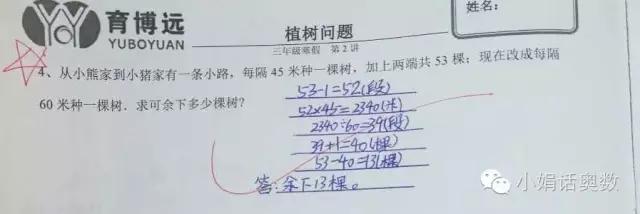 育博远
YUBOYUAN
植树问题
三年级寒假 第2讲
姓名:
4、从小熊家到小猪家有一条小路,每隔45米种一棵树,加上两端共53棵;现在改成每隔
60米种一棵树.求可余下多少棵树?
53-1=52(段)
52×45=2340(米)
2340÷60=39(段)
39+1=40(棵)
53-40=13(棵)
答:余下13棵。
小娟话奥数